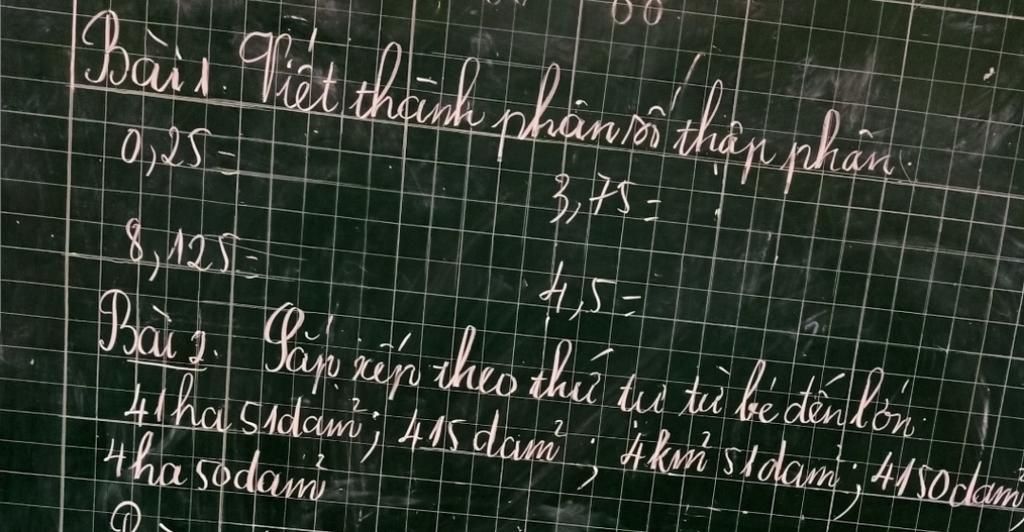 Bài 1. Viết thành phân số thập phân:
0,25=
3,75=
8,125=
4,5=
Bài 2. Sắp xếp theo thứ tự từ bé đến lớn:
41ha 51dam²; 415 dam²; 4km² 51dam²; 4150dam²
4ha 50dam²